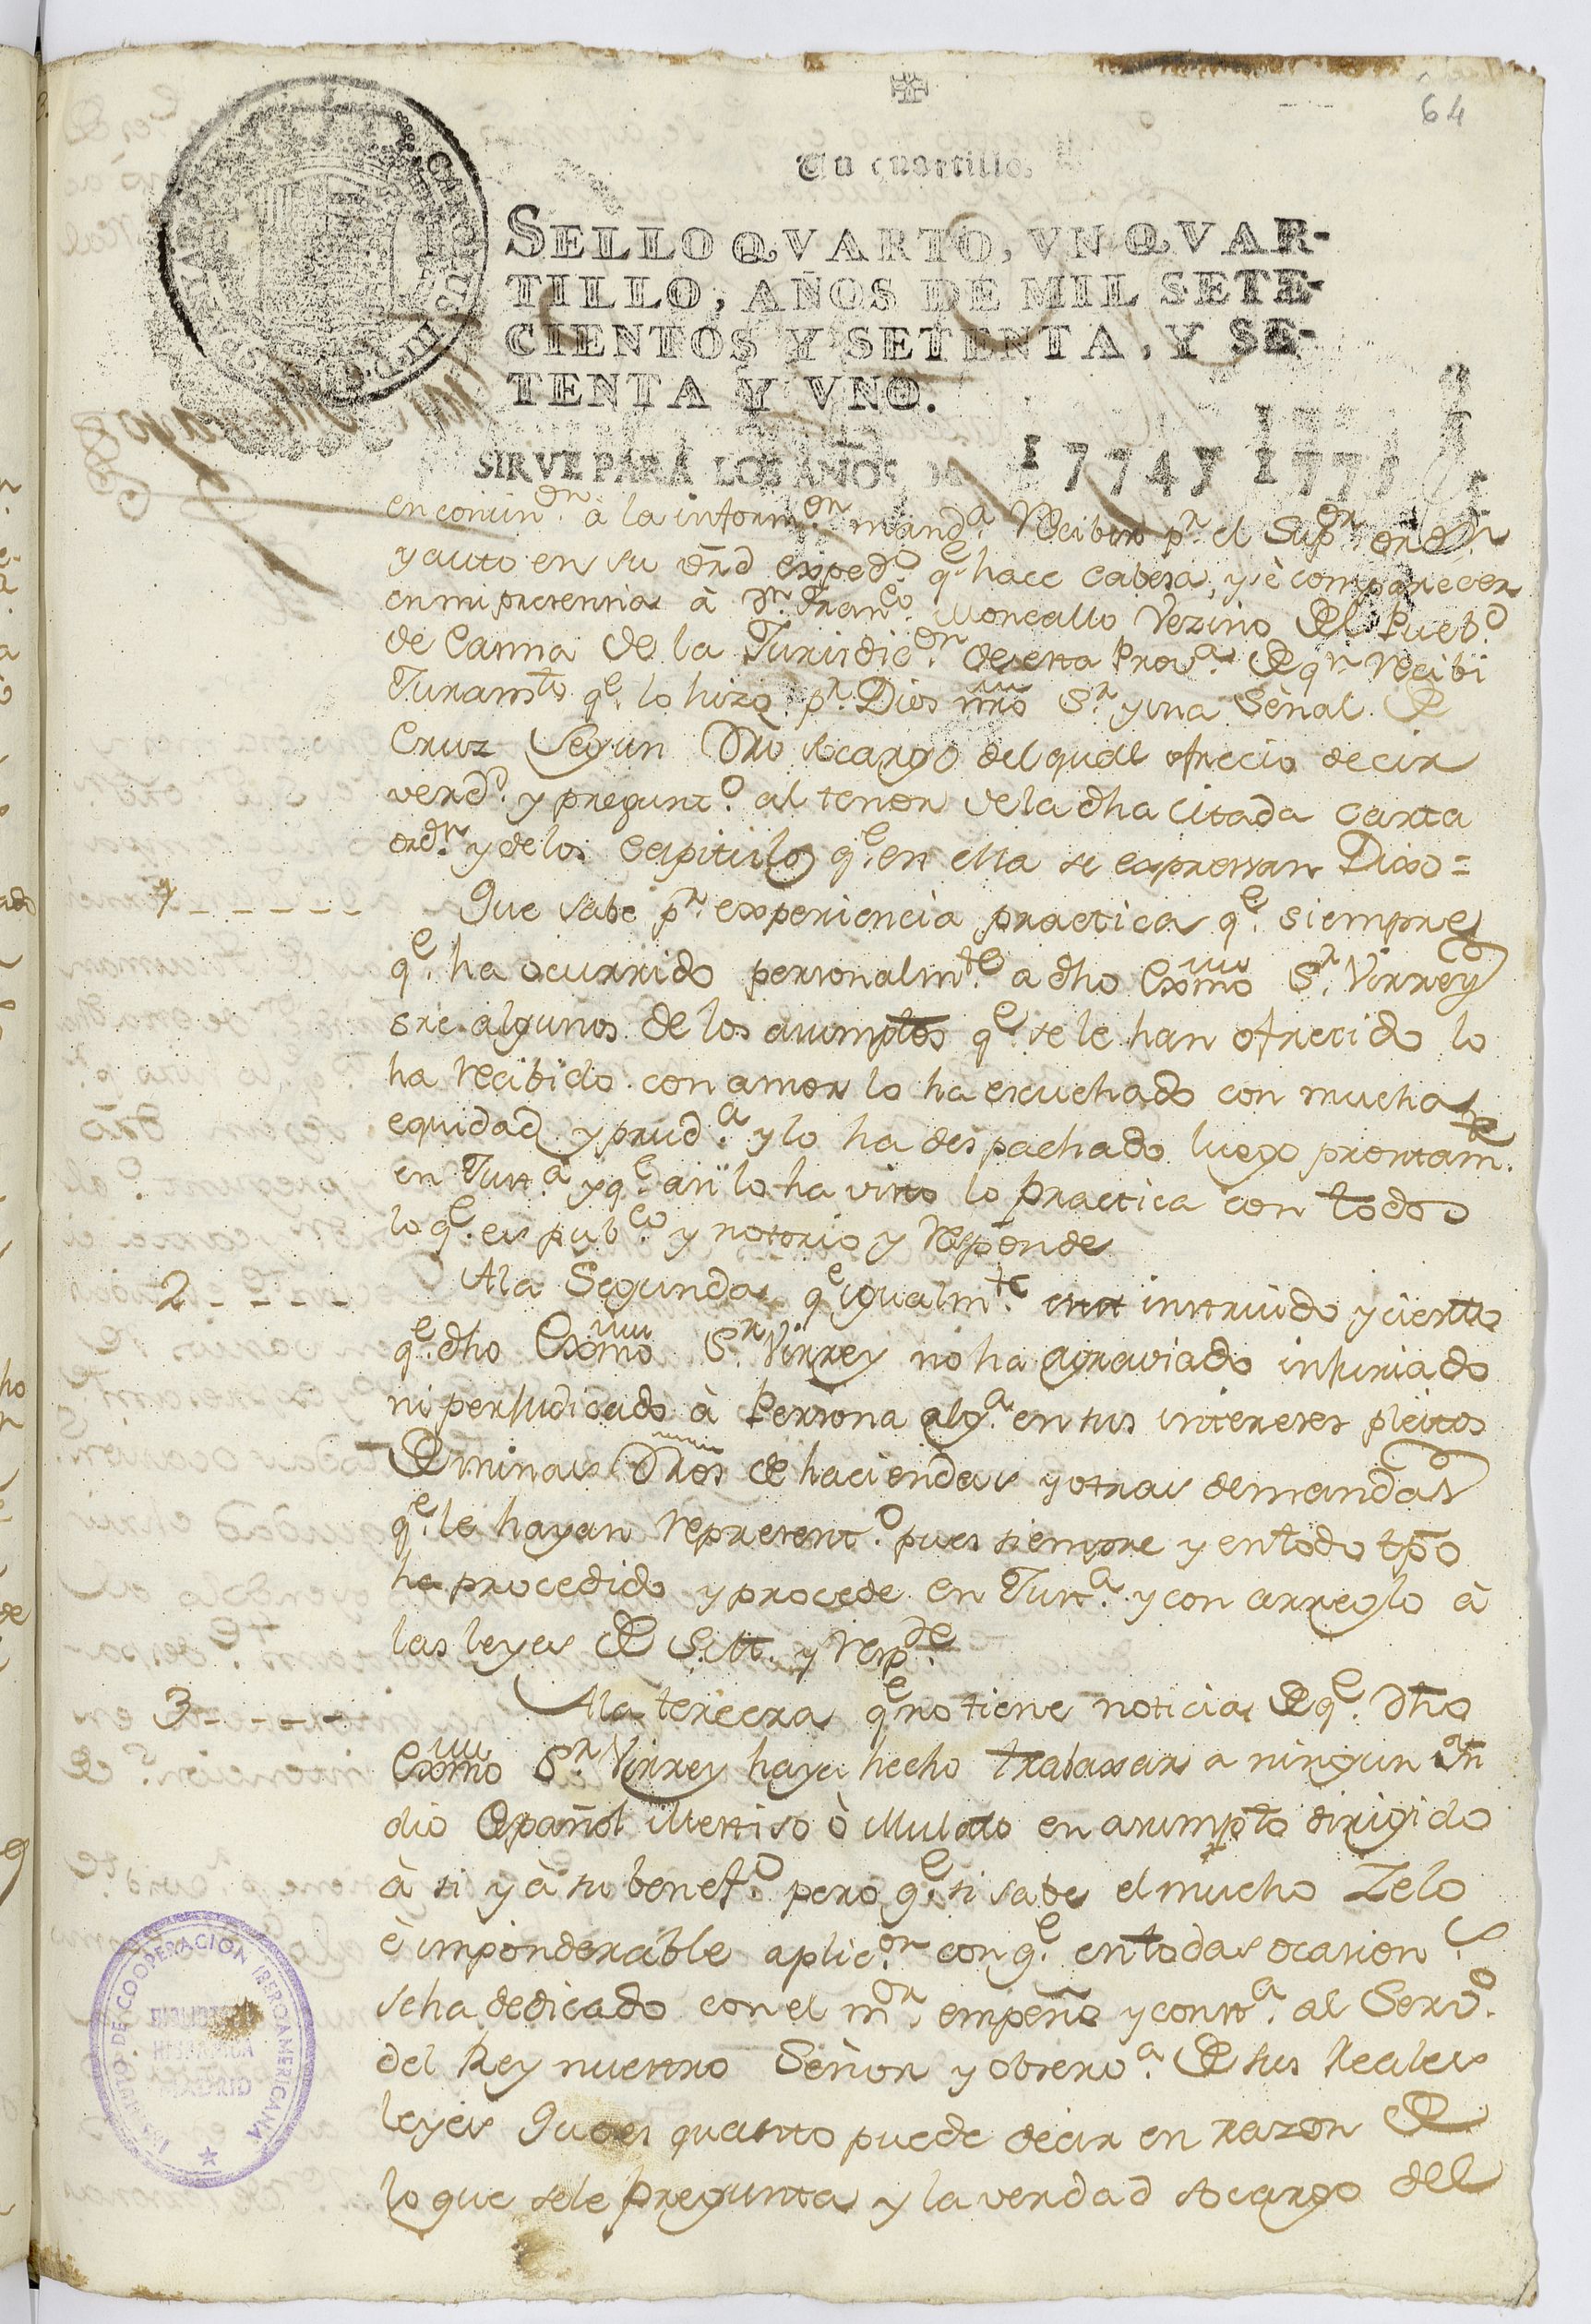 64
Un cuartillo.
SELLO QVARTO, VN QVAR-
TILLO, AÑOS DE MIL SETE-
CIENTOS Y SETENTA, Y SE-
TENTA Y VNO.
SIRVE PARA LOS AÑOS DE 1774 y 1775
en contin.on â la inform.on mand.a Recibir p.r el Sup.or ord.n
y auto en su ôrd exped.o q.e hace cabesa, y è comparecer
en mi presencia à D.n Fran.co Moncallo Vezino del Pueb.o
de Canna de la Jurisdic.on de esta Prov.a de q.n Recibi
Juram.to q.e lo hizo p.r Dios nrô S.r y una Señal de
Cruz Segun Dro so cargo del qual ofrecio decir
verd.d y pregunt.o al tenor de la dha citada carta
ord.n y de los Capitulos q.e en ella se expressan Dixo=
1 - - - - - - Que sabe p.r experiencia practica q.e siempre
q.e ha ocurrido personalm.te a dho Exmo S.r Virrey
sre algunos de los asumptos q.e se le han ofrecido lo
ha recibido con amor lo ha escuchado con mucha
equidad y prud.a y lo ha despachado luego prontam.te
en Just.a y q.e asi lo ha visto lo practica con todos
lo q.e es pub.co y notorio y Responde
2 - - - - Ala Segunda q.e igualm.te está instruido y cierto
q.e dho Exmo S.r Virrey no ha agraviado injuriado
ni perjudicado à Persona alg.a en sus intereses pleitos
de minas Dros de haciendas y otras demandas
q.e le hayan represent.o pues siempre y en todo tpõ
ha procedido y procede en Just.a y con arreglo à
las leyes de S.M. y Resp.de
3 - - - - Ala tercera q.e no tiene noticia de q.e dho
Exmo S.r Virrey haya hecho trabaxar a ningun In
dio Español Mestiso ò Mulato en asumpto dirigido
à si y à su benef.o pero q.e si sabe el mucho Zelo
è imponderable aplic.on con q.e en todas ocasion.s
se ha dedicado con el m.or empeño y const.a al Serv.o
del Rey nuestro Señor y observ.a de sus Reales
leyes Que es quanto puede decir en razon de
lo que se le pregunta y la verdad so cargo del
INSTITUTO DE COOPERACION IBEROAMERICANA
BIBLIOTECA
HISPANICA
MADRID